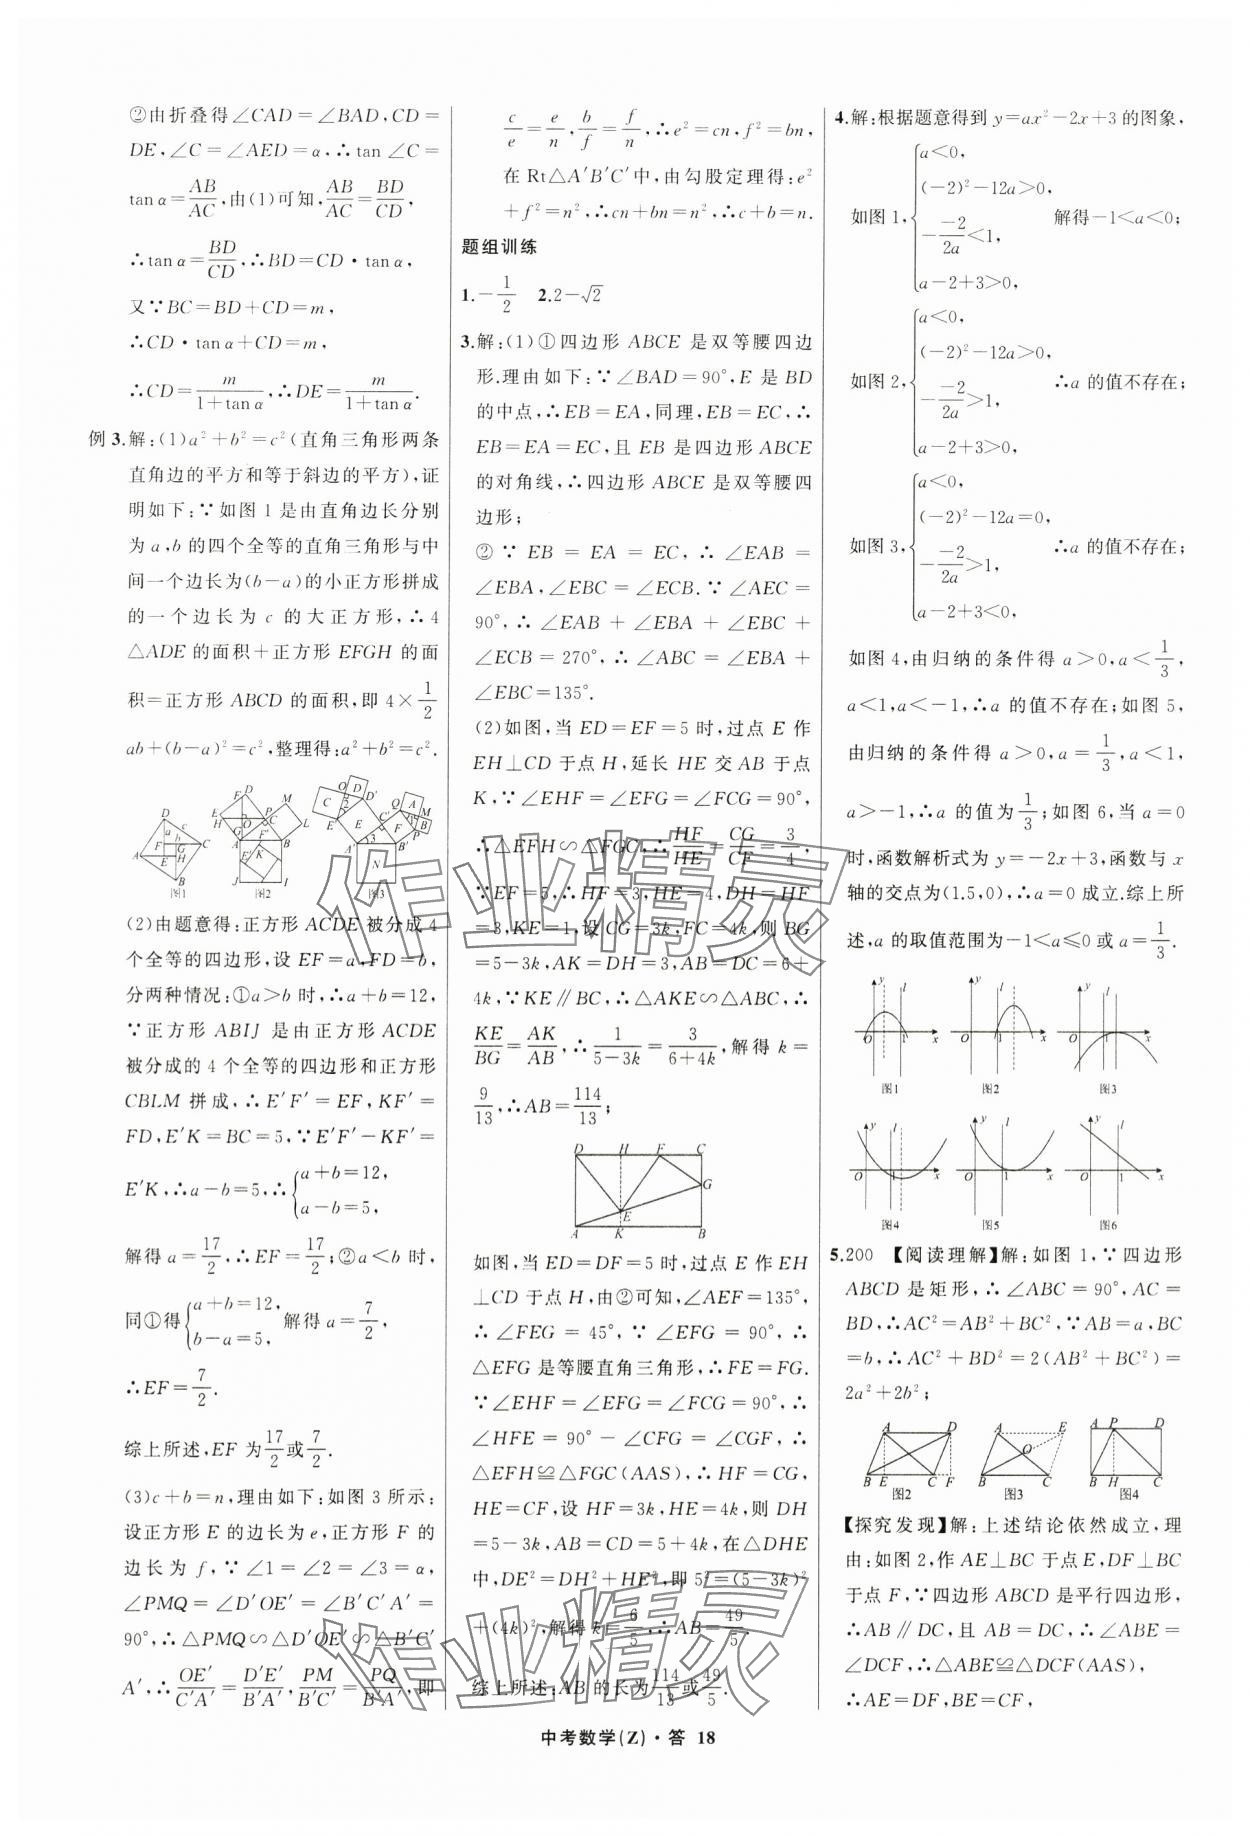 ②由折叠得∠CAD=∠BAD,CD=
DE,∠C=∠AED=α,∴tan∠C=
tanα=AB/AC,由(1)可知,AB/AC=BD/CD,
∴tanα=BD/CD,∴BD=CD·tanα,
又∵BC=BD+CD=m,
∴CD·tanα+CD=m,
∴CD=m/(1+tanα),∴DE=m/(1+tanα).
例3.解:(1)a²+b²=c²(直角三角形两条
直角边的平方和等于斜边的平方),证
明如下:∵如图1是由直角边长分别
为a,b的四个全等的直角三角形与中
间一个边长为(b-a)的小正方形拼成
的一个边长为c的大正方形,∴4
△ADE的面积+正方形EFGH的面
积=正方形ABCD的面积,即4×1/2
ab+(b-a)²=c²,整理得:a²+b²=c².
图1 图2 图3
(2)由题意得:正方形ACDE被分成4
个全等的四边形,设EF=a,FD=b,
分两种情况:①a>b时,∴a+b=12,
∵正方形ABIJ是由正方形ACDE
被分成的4个全等的四边形和正方形
CBLM拼成,∴E′F′=EF,KF′=
FD,E′K=BC=5,∵E′F′-KF′=
E′K,∴a-b=5,∴{a+b=12,
a-b=5,
解得a=17/2,∴EF=17/2;②a<b时,
同①得{a+b=12,
b-a=5,解得a=7/2,
∴EF=7/2.
综上所述,EF为17/2或7/2.
(3)c+b=n,理由如下:如图3所示:
设正方形E的边长为e,正方形F的
边长为f,∵∠1=∠2=∠3=α,
∠PMQ=∠D′OE′=∠B′C′A′=
90°,∴△PMQ∽△D′OE′∽△B′C′
A′,∴OE′/C′A′=D′E′/B′A′,PM/B′C′=PQ/B′A′,即
c/e=e/n,b/f=f/n,∴e²=cn,f²=bn,
在Rt△A′B′C′中,由勾股定理得:e²
+f²=n²,∴cn+bn=n²,∴c+b=n.
题组训练
1.-1/2 2.2-√2
3.解:(1)①四边形ABCE是双等腰四边
形.理由如下:∵∠BAD=90°,E是BD
的中点,∴EB=EA,同理,EB=EC,∴
EB=EA=EC,且EB是四边形ABCE
的对角线,∴四边形ABCE是双等腰四
边形;
②∵EB=EA=EC,∴∠EAB=
∠EBA,∠EBC=∠ECB.∵∠AEC=
90°,∴∠EAB+∠EBA+∠EBC+
∠ECB=270°,∴∠ABC=∠EBA+
∠EBC=135°.
(2)如图,当ED=EF=5时,过点E作
EH⊥CD于点H,延长HE交AB于点
K,∵∠EHF=∠EFG=∠FCG=90°,
∴△EFH∽△FGC,∴HF/HE=CG/CF=3/4,
∵EF=5,∴HF=3,HE=4,DH=HF
=3,KE=1,设CG=3k,FC=4k,则BG
=5-3k,AK=DH=3,AB=DC=6+
4k,∵KE∥BC,∴△AKE∽△ABC,∴
KE/BG=AK/AB,∴1/(5-3k)=3/(6+4k),解得k=
9/13,∴AB=114/13;
D H F C
G
E
A K B
如图,当ED=DF=5时,过点E作EH
⊥CD于点H,由②可知,∠AEF=135°,
∴∠FEG=45°,∵∠EFG=90°,∴
△EFG是等腰直角三角形,∴FE=FG.
∵∠EHF=∠EFG=∠FCG=90°,∴
∠HFE=90°-∠CFG=∠CGF,∴
△EFH≌△FGC(AAS),∴HF=CG,
HE=CF,设HF=3k,HE=4k,则DH
=5-3k,AB=CD=5+4k,在△DHE
中,DE²=DH²+HE²,即5²=(5-3k)²
+(4k)²,解得k=6/5,∴AB=49/5.
综上所述:AB的长为114/13或49/5.
4.解:根据题意得到y=ax²-2x+3的图象,
如图1,{a<0,
(-2)²-12a>0,
-(-2)/2a<1,
a-2+3>0, 解得-1<a<0;
如图2,{a<0,
(-2)²-12a>0,
-(-2)/2a>1,
a-2+3>0, ∴a的值不存在;
如图3,{a<0,
(-2)²-12a=0,
-(-2)/2a>1,
a-2+3<0, ∴a的值不存在;
如图4,由归纳的条件得a>0,a<1/3,
a<1,a<-1,∴a的值不存在;如图5,
由归纳的条件得a>0,a=1/3,a<1,
a>-1,∴a的值为1/3;如图6,当a=0
时,函数解析式为y=-2x+3,函数与x
轴的交点为(1.5,0),∴a=0成立.综上所
述,a的取值范围为-1<a≤0或a=1/3.
图1 图2 图3
图4 图5 图6
5.200 【阅读理解】解:如图1,∵四边形
ABCD是矩形,∴∠ABC=90°,AC=
BD,∴AC²=AB²+BC²,∵AB=a,BC
=b,∴AC²+BD²=2(AB²+BC²)=
2a²+2b²;
A D A E A P D
O
B E C F B C B H C
图2 图3 图4
【探究发现】解:上述结论依然成立,理
由:如图2,作AE⊥BC于点E,DF⊥BC
于点F,∵四边形ABCD是平行四边形,
∴AB∥DC,且AB=DC,∴∠ABE=
∠DCF,∴△ABE≌△DCF(AAS),
∴AE=DF,BE=CF,
中考数学(Z)·答 18
作业精灵
作业精灵